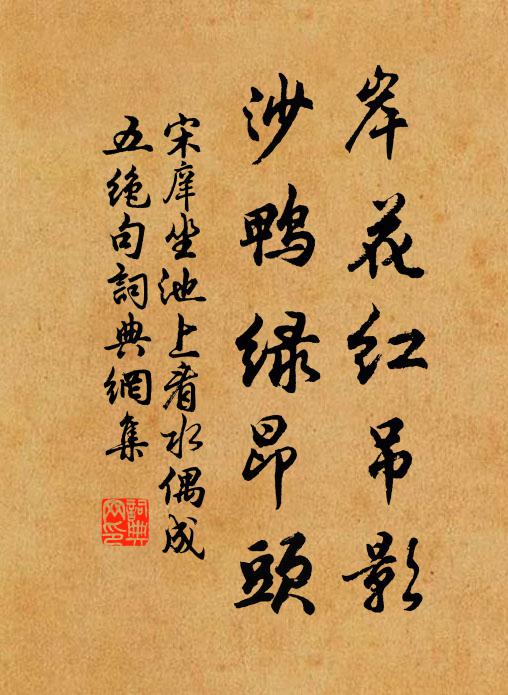 岸花红吊影
沙鸭绿昂头
宋庠坐池上看水偶成
五绝句词典網集
词典
网印